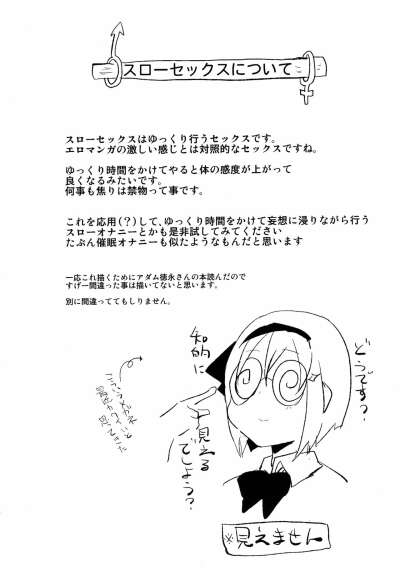 スローセックスについて
スローセックスはゆっくり行うセックスです。
エロマンガの激しい感じとは対照的なセックスですね。
ゆっくり時間をかけてやると体の感度が上がって
良くなるみたいです。
何事も焦りは禁物って事です。
これを応用(?)して、ゆっくり時間をかけて妄想に浸りながら行う
スローオナニーとかも是非試してみてください
たぶん催眠オナニーも似たようなもんだと思います
一応これ描くためにアダム徳永さんの本読んだので
すげー間違った事は描いてないと思います。
別に間違っててもしりません。
どうです?
知的に
見える
でしょう?
※見えません